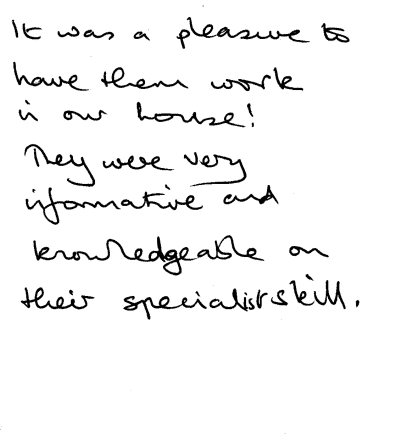 It was a pleasure to
have them work
in our house!
They were very
informative and
knowledgeable on
their specialist skill.